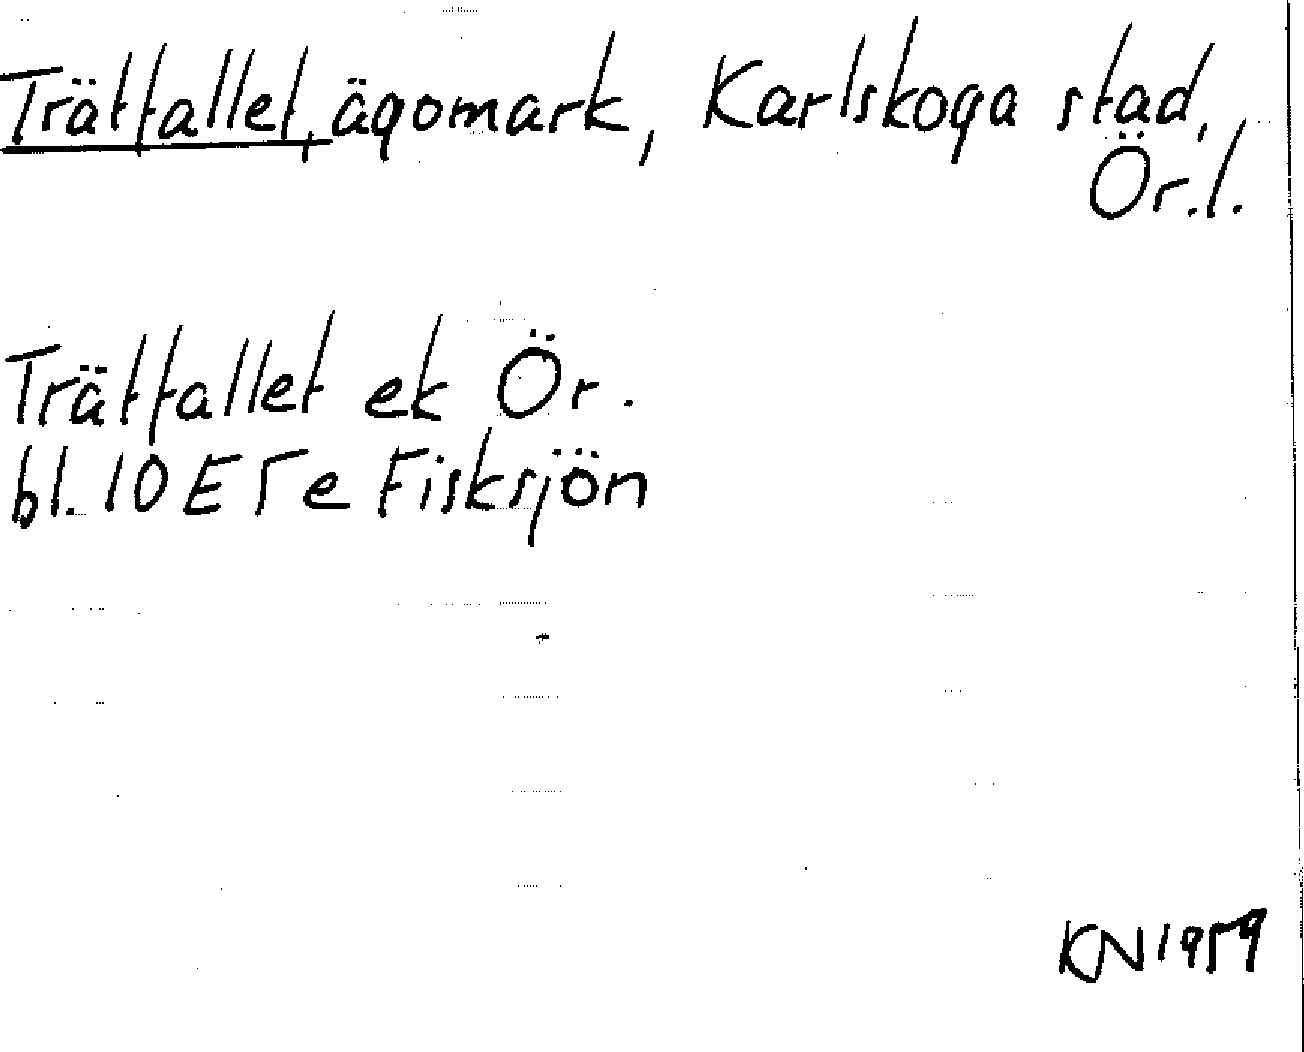 Trätfallet, ägomark, Karlskoga stad,
Ör.l.
Trätfallet ek Ör.
bl. 10 E 5 e Fisksjön
KN 1959